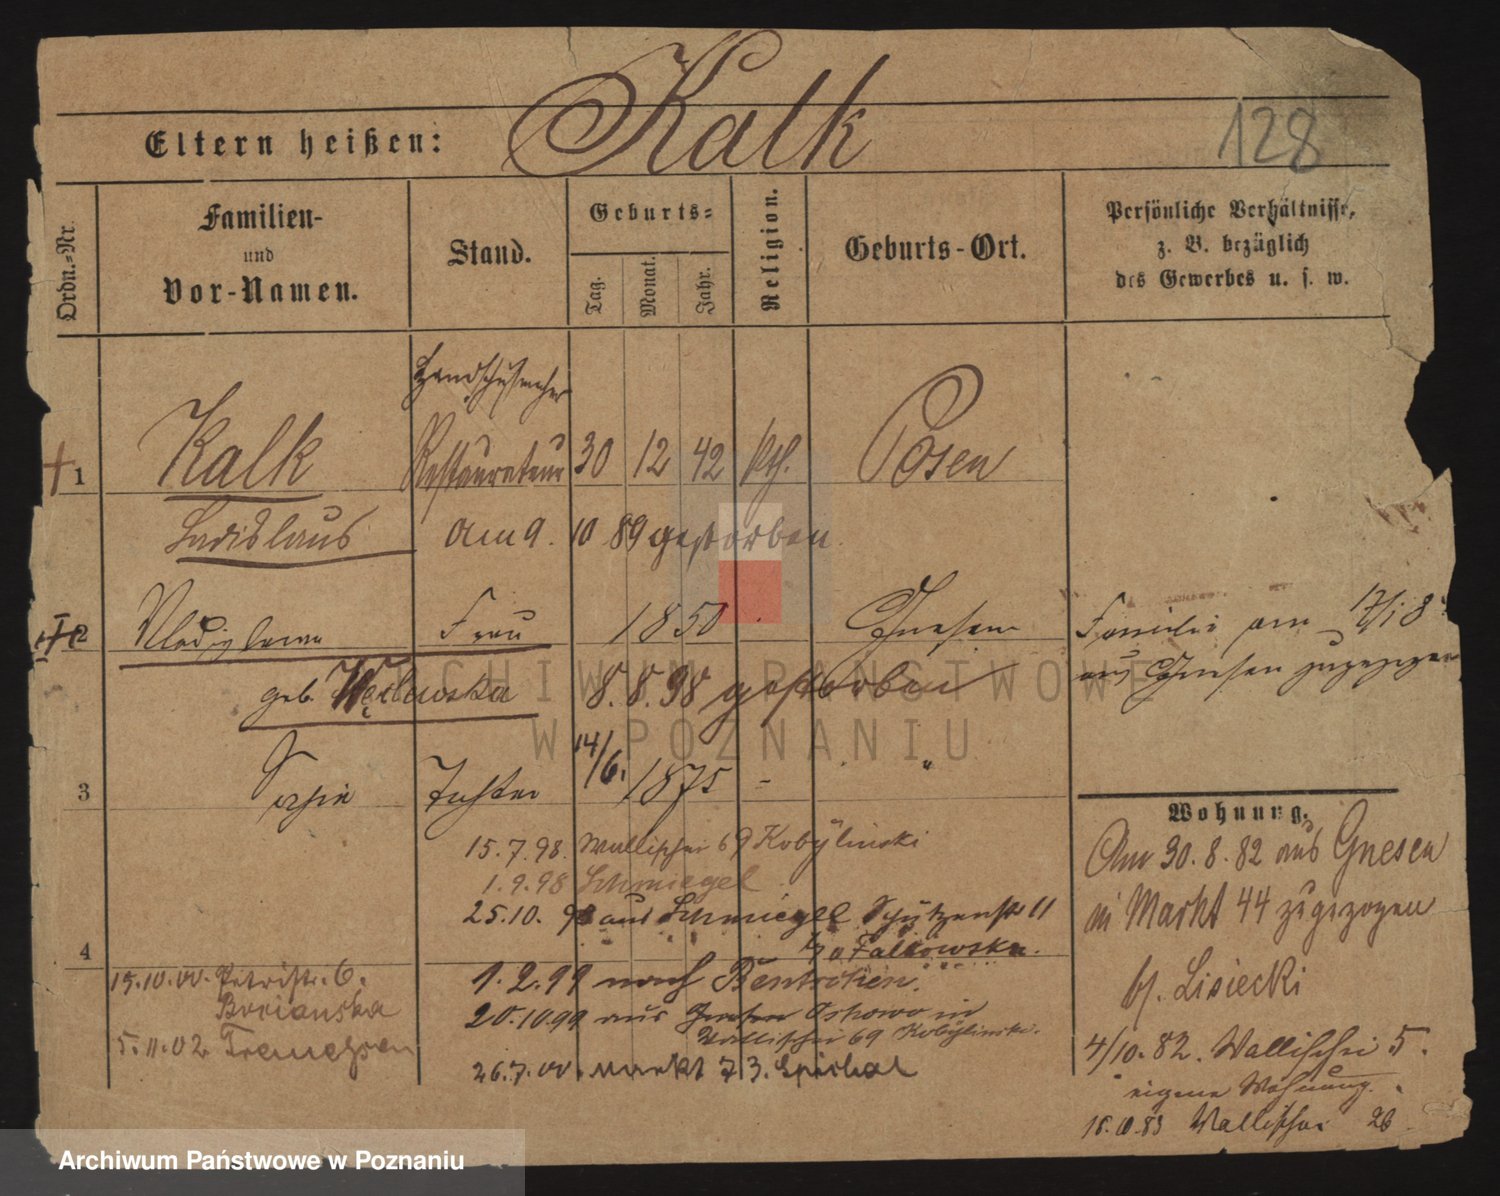 Kalk
128
Eltern heißen:
Ordn.-Nr.
Familien-
und
Vor-Namen.
Stand.
Geburts-
Tag.
Monat.
Jahr.
Religion.
Geburts-Ort.
Persönliche Verhältnisse,
z. B. bezüglich
des Gewerbes u. s. w.
Handschuhmacher
1 Kalk Restaurateur 30 12 42 kth. Posen
Ladislaus am 9. 10 89 gestorben.
2 Wladislawa Frau 1850 Gnesen
Familie am 17/8
aus Gnesen zugezogen
geb. 8.8.98 gestorben
3 Sophie Tochter 14/6. 1875 - "
Wohnung.
Am 30. 8. 82 aus Gnesen
in Markt 44 zugezogen
bj. Lisiecki
4/10. 82. Wallischei 5.
eigene Wohnung.
Wallischei 26
15.7.98. Wallischei 69 Kobylinski
1.9.98 Schmiegel
25.10. 98 aus Schmiegel Schützenstr 11
Falkowska.
4
1.2.99 nach Bentschen.
20.10.99 aus Oshowo in
Wallischei 69 Kobylinski.
26.7.00. Markt 73. Spichal
15.10.00. Petristr. 6.
Bocianska
5.11.02. Tremessen
ARCHIWUM PAŃSTWOWE
W POZNANIU
Archiwum Państwowe w Poznaniu